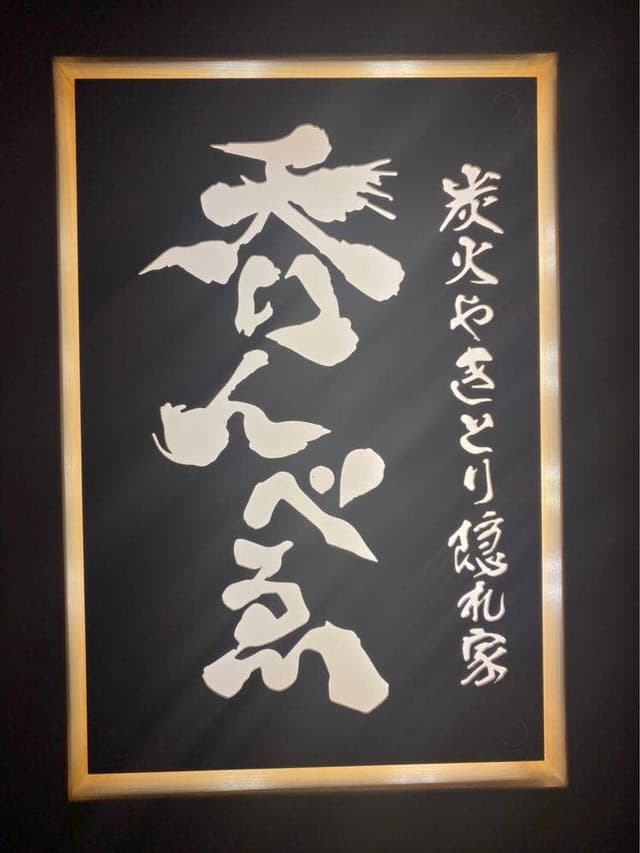 炭火やきとり隠れ家
呑んべゑ